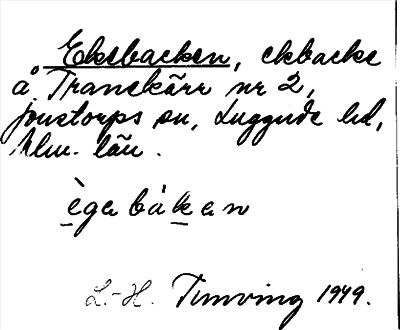 Eksbacken, ekbacke
å Tranekärr nr 2,
Jonstorps sn, Luggude hd,
Mlm. län.
ègabåkan
L.-H. Tunving 1949.